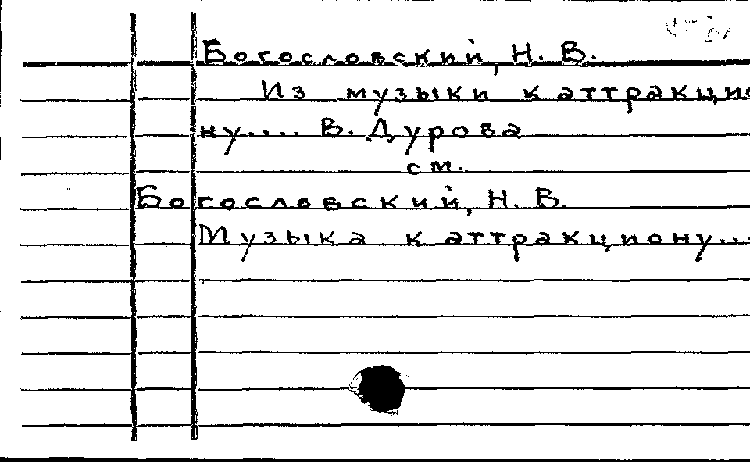 Богословский, Н. В.
Из музыки к аттракцио
ну.... В. Дурова
см.
Богословский, Н. В.
Музыка к аттракциону...